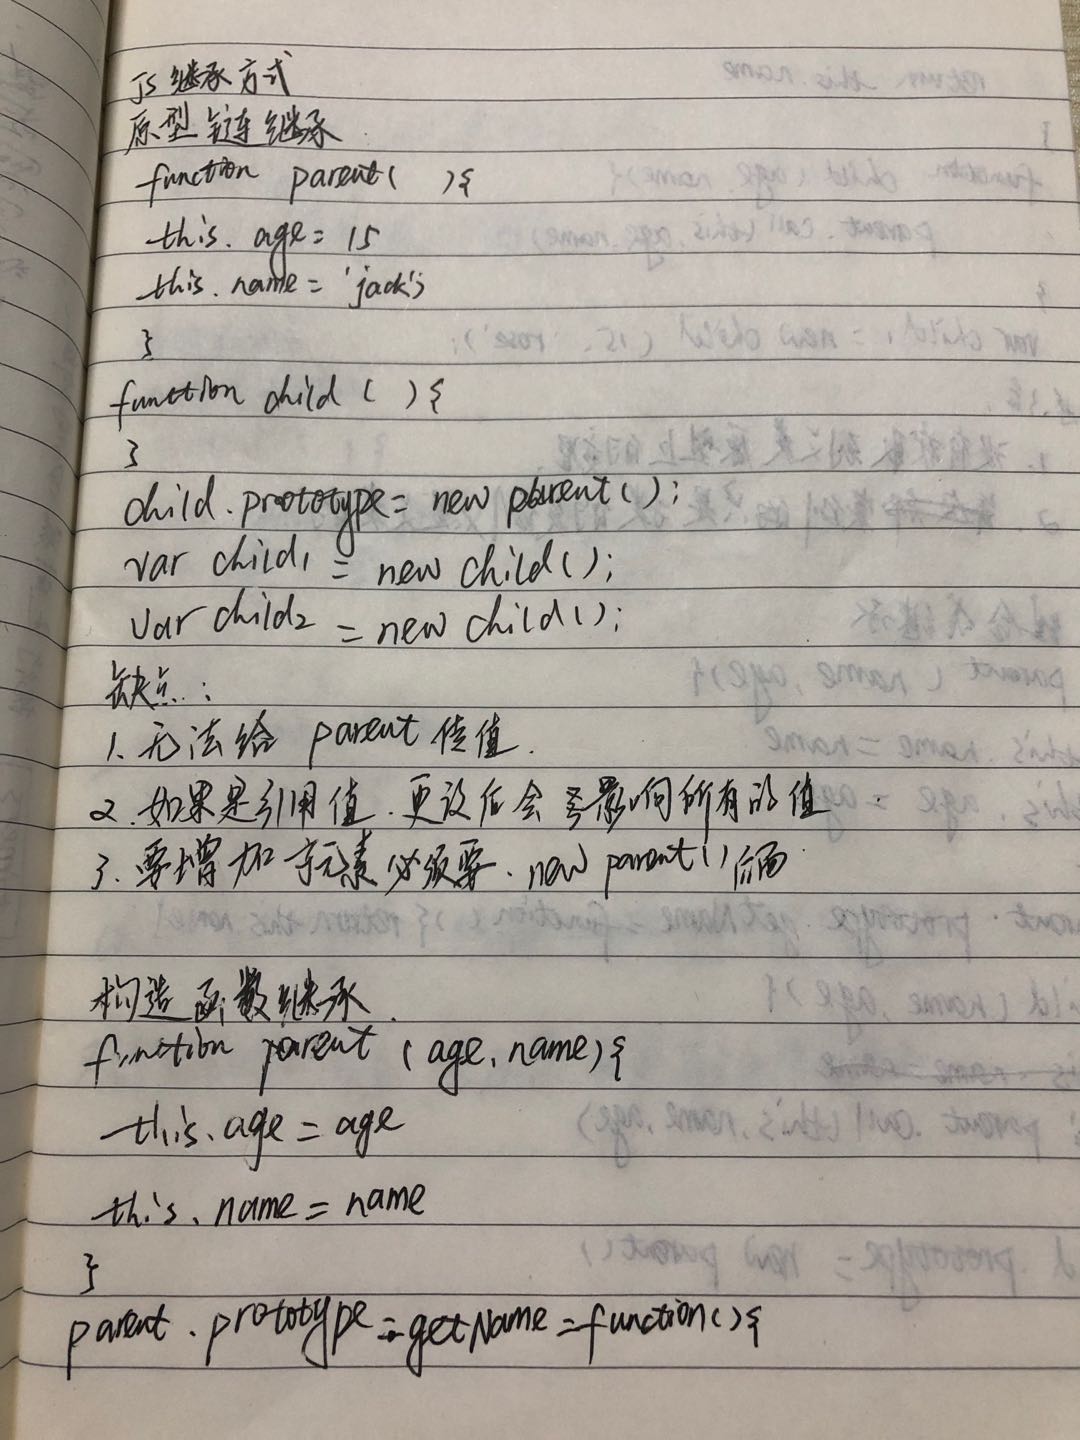 JS继承方式
原型链继承
function parent( ){
this.age = 15
this.name = 'jack';
}
function child ( ){
}
child.prototype = new parent();
var child1 = new child();
var child2 = new child();
缺点:
1.无法给 parent 传值.
2.如果是引用值.更改后会影响所有的值
3.要增加子元素必须要.new parent()后面
构造函数继承.
function parent (age, name){
this.age = age
this.name = name
}
parent.prototype.getName = function(){